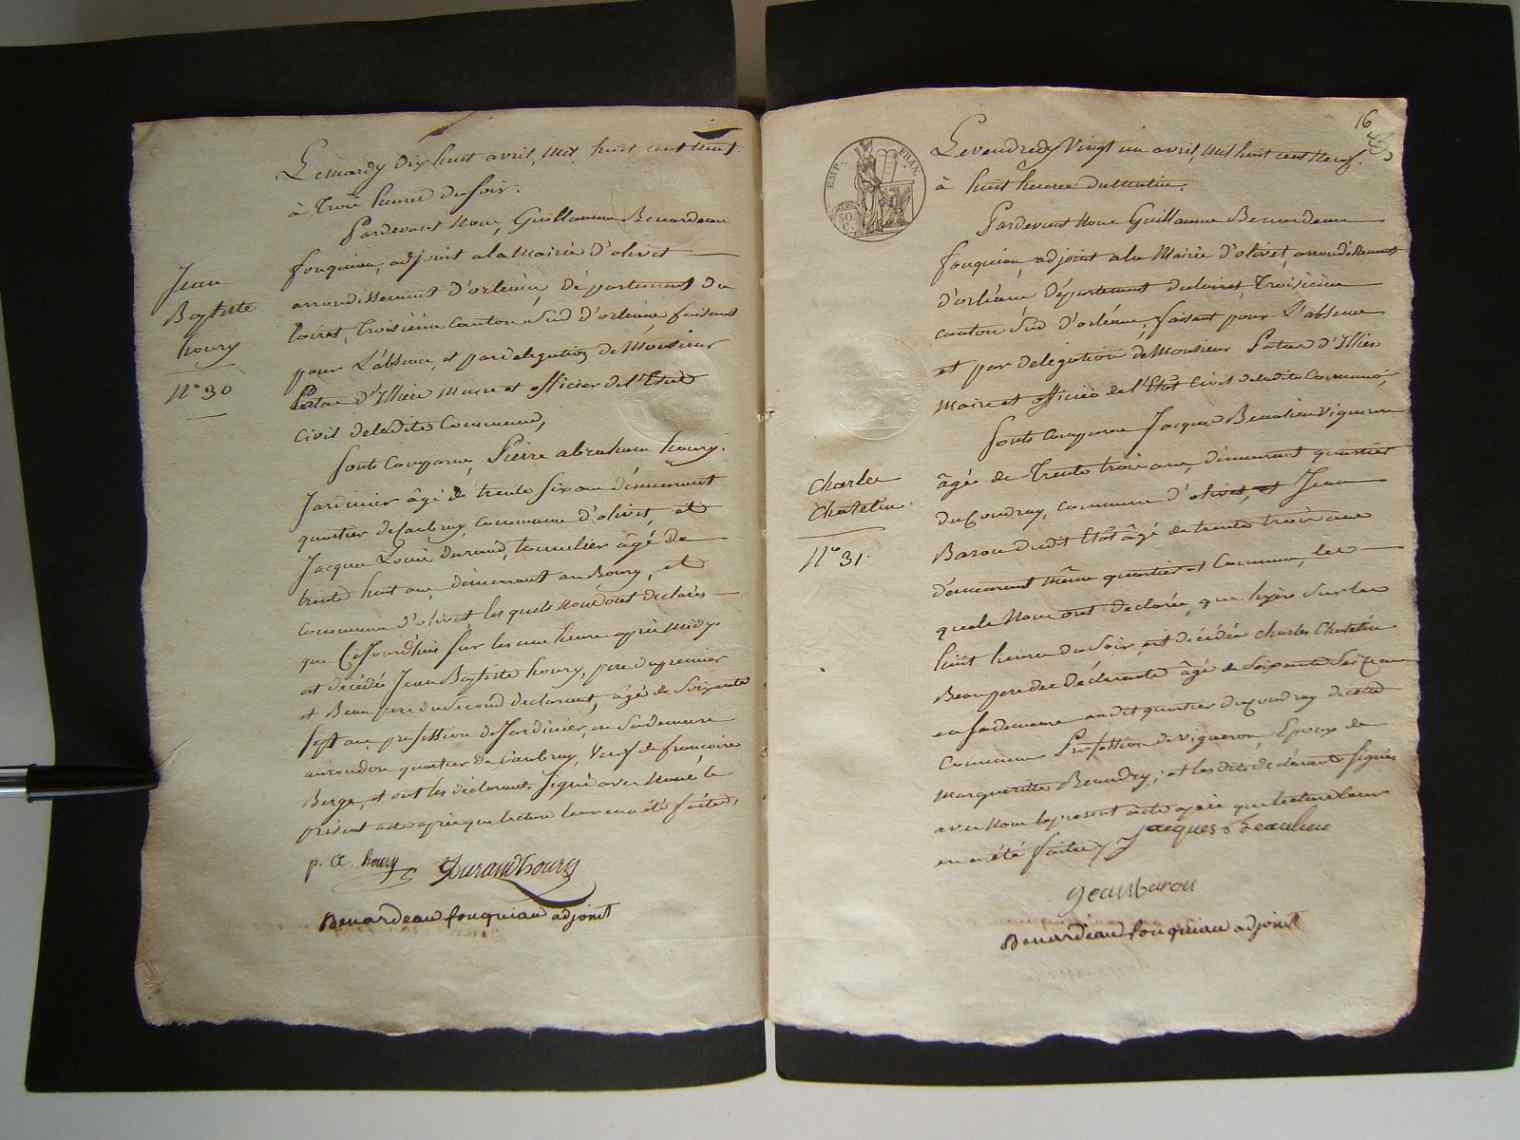 Le mardy Dix huit avril, mil huit cent neuf.
à Trois heures du soir.
Pardevant Nous, Guillaume Benardeau
fouquiau, adjoint a la Mairie d'olivet
arrondissement d'orleans, département du
loiret, Troisième Canton Sud d'orleans faisant
pour L'absence, et par delegation de Monsieur
Patas d'Illiers Maire et officier de l'Etat
Civil de ladite Commune,
Sont Comparus, Pierre abraham houry.
Jardinier âgé de trente six ans demeurant
quartier de Caubray, commune d'olivet, et
Jacques Louis Durand, tonnelier âgé de
trente huit ans, demeurant au Bourg, et
commune d'olivet les quels nous ont declarés
que Cejourd'hui sur les une heure après midy
est décédé Jean Baptiste houry, pere du premier
et Beau pere du second déclarant, âgé de Soixante
sept ans, profession de Jardinier, en sa demeure
quartier de Caubray, Veuf de françoise
Berge, et ont les déclarants Signé avec Nous, le
présent acte après que lecture leur en a été faite.
p. a. houry Durand houry
Benardeau fouquiau adjoint
Jean
Baptiste
houry
N° 30
16
EMP. FRAN.
50
Le vendredy Vingt un avril, mil huit cent Neuf.
à huit heures du Matin.
Pardevant Nous Guillaume Benardeau
fouquiau, adjoint a la Mairie d'olivet, arrondissement
d'orléans Département du loiret Troisième
canton Sud d'orléans, faisant pour L'absence
et par delegation de Monsieur Patas d'Illiers
Maire et officier de l'Etat Civil de ladite Commune,
Sont Comparus Jacques Beaulieu Vigneron
âgé de Trente trois ans, demeurant quartier
du Coudray, commune d'olivet, et Jean
Baron dudit Etat âgé de trente trois ans
demeurant même quartier et Commune, les
quels Nous ont declarés, que hyer Sur les
huit heures du Soir, est décédé Charles Chatelin
Beau pere des Déclarants âgé de Soixante
en sa demeure audit quartier du Coudray de cette
Commune Profession de Vigneron, Epoux de
Margueritte Beaudry; et les dits déclarants signés
avec Nous le present acte après que lecture leur
en a été faite. Jacques Beaulieu
Jean baron
Benardeau fouquiau adjoint
Charles
Chatelin.
N° 31.